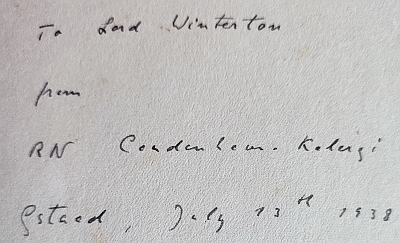 To Lord Winterton
from
RN Coudenhove-Kalergi
Gstaad, July 13th 1938